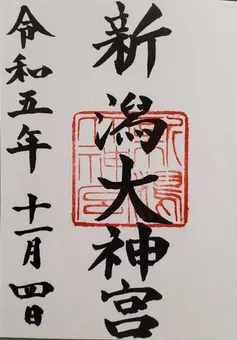 新潟大神宮
令和五年 十一月四日